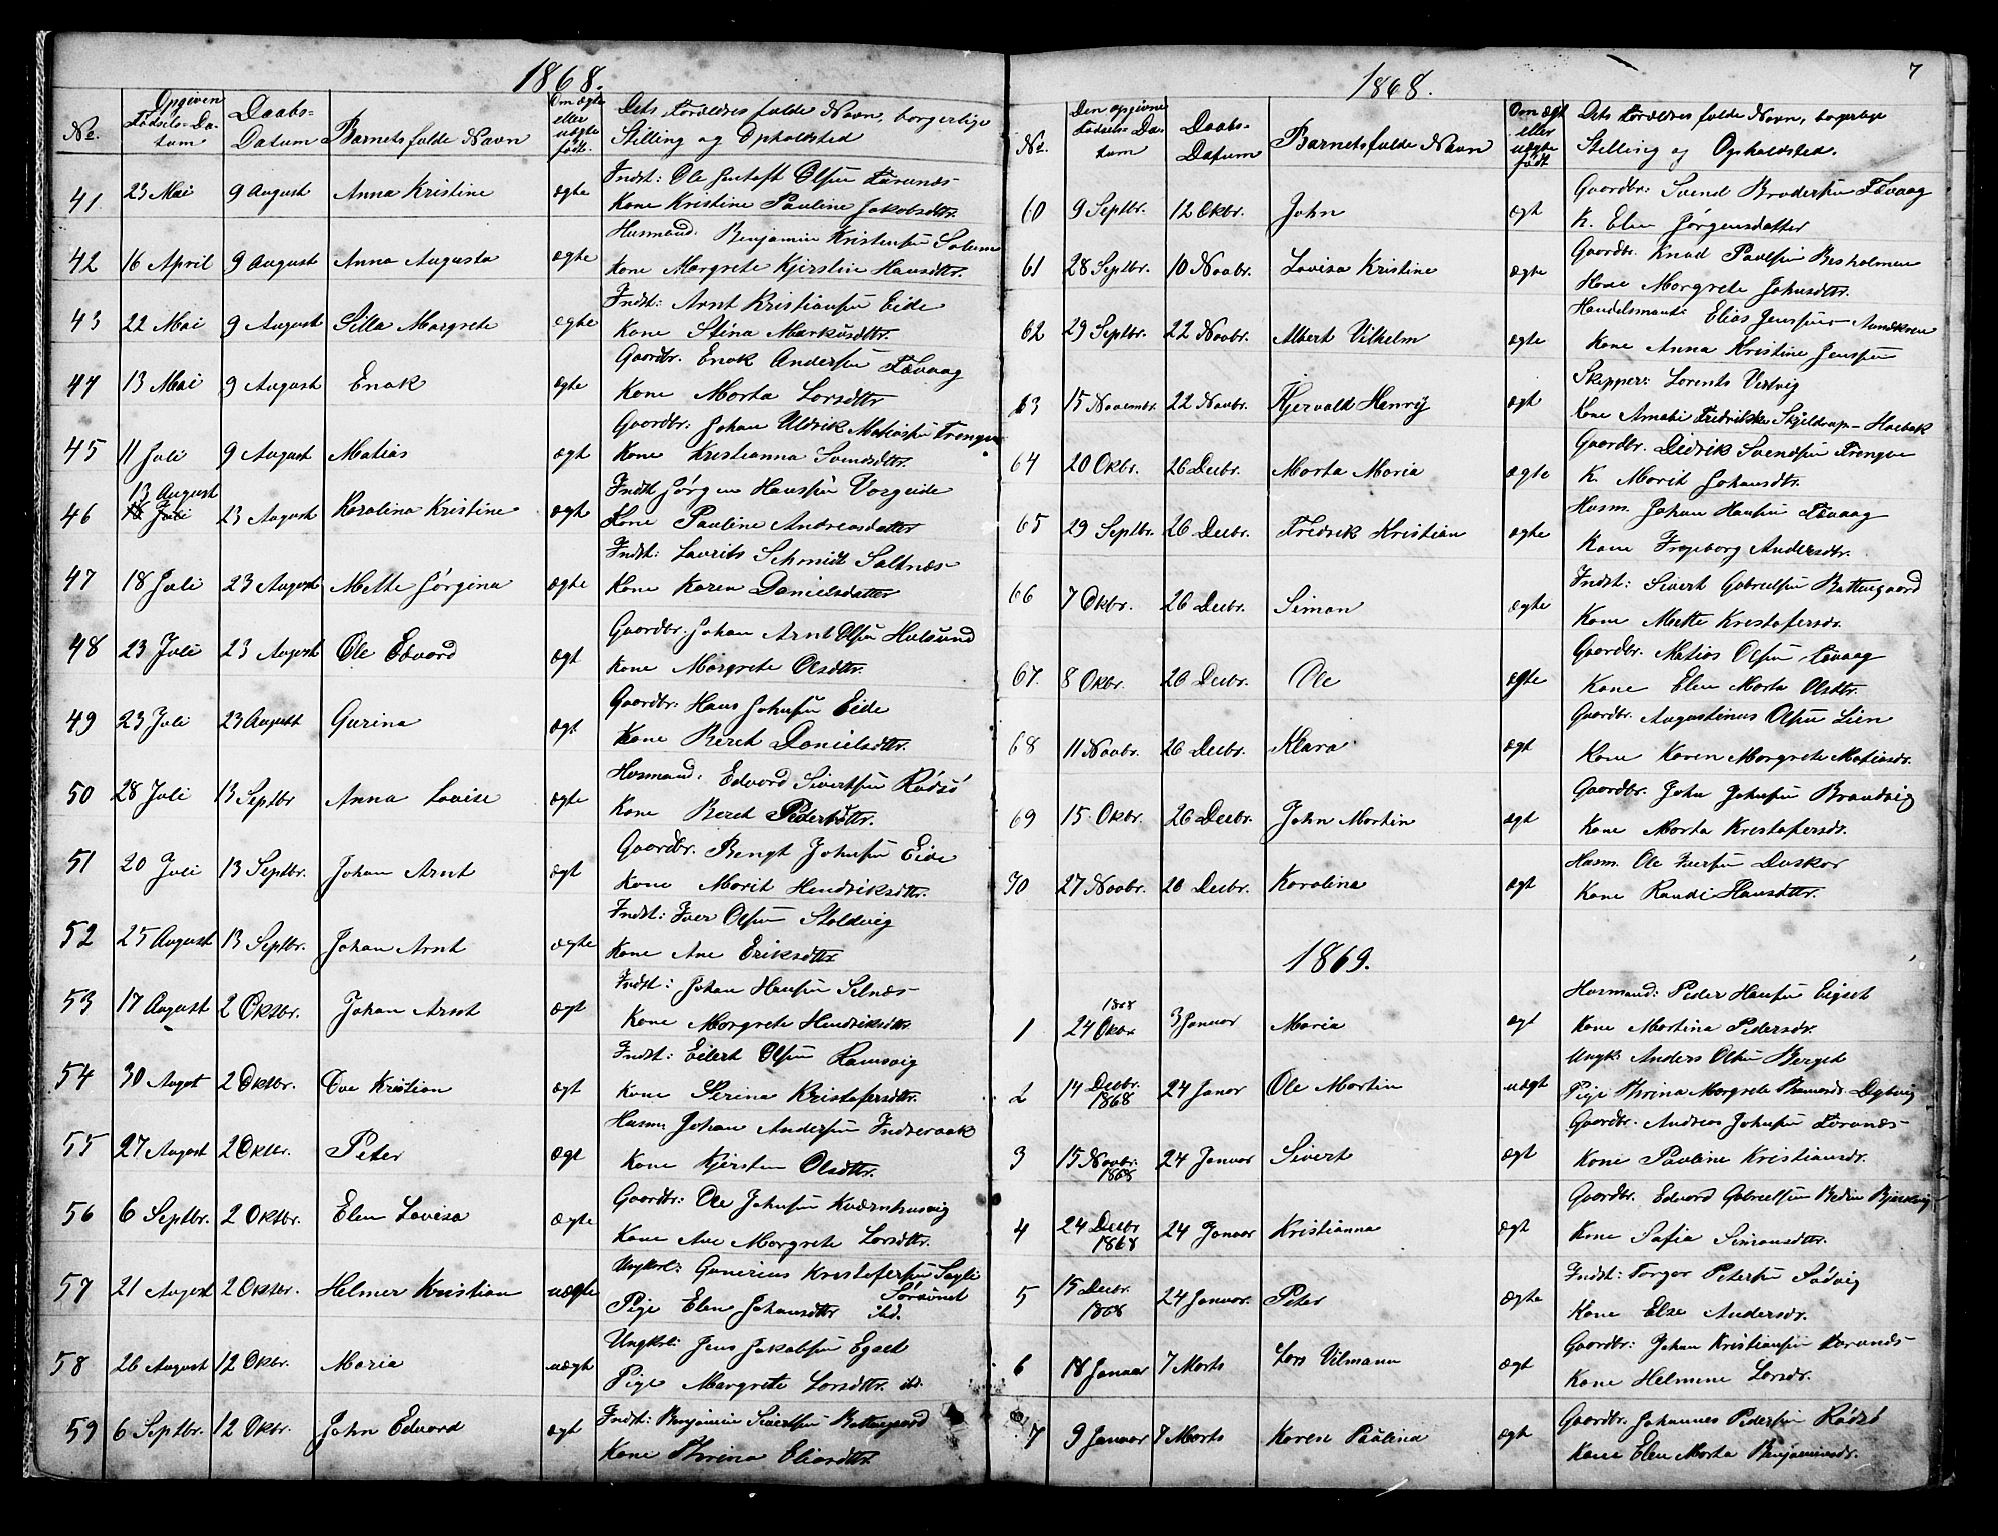 1868.
No. Opgiven Fødsels-Datum Daabs-Datum Barnets fulde Navn Om ægte eller uægte født. Dets Forældres fulde Navn, borgerlige Stilling og Opholdsted
41 23 Mai 9 August Anna Kristine ægte Indst: Ole Gustaft Olsen
Kone Kristine Pauline Jakobsdttr.
42 16 April 9 August Anna Augusta ægte Husmand: Benjamin Kristensen Solum
Kone Margrete Kjerstine Hansdttr.
43 22 Mai 9 August Silla Margrete ægte Indst: Arnt Kristiansen Eide
Kone Stina Markusdttr.
44 13 Mai 9 August Enok ægte Gaardbr. Enok Andersen Fævaag
Kone Marta Larsdttr
45 11 Juli 9 August Matias ægt Gaardbr: Johan Uldrik Matiassen
Kone Kristianna Svendsdttr.
46 13 August 18 Juli 23 August Karolina Kristine ægt Indst Jørgen Hansen
Kone Pauline Andreasdatter
47 18 Juli 23 August Mette Jørgina ægte Indst: Laurits Schmidt Saltnæs
Kone Karen Danielsdatter
48 23 Juli 23 August Ole Edvard ægt Gaardbr. Johan Arnt Olsen Hulsund
Kone Margrete Olsdttr.
49 23 Juli 23 August Gurina ægt Gaardbr: Hans Johnsen Eide
Kone Beret Danielsdttr.
50 28 Juli 13 Septbr Anna Lovise ægte Husmand: Edvard Sivertsen Rødsø
Kone Beret Pedersdttr.
51 20 Juli 13 Septbr. Johan Arnt ægt Gaardbr. Bengt Johnsen Eide
Kone Marit Hendriksdttr.
52 25 August 13 Septbr. Johan Arnt ægte Indst: Iver Olsen Stoldvig
Kone Ane Eriksdttr.
53 17 August 2 Oktbr. Johan Arnt ægt Indst: Johan Hansen Selnæs
Kone Margrete Hendriksdttr.
54 30 Augst 2 Oktbr. Ove Kristian ægt Indst: Eilert Olsen Ramsvig
Kone Serina Kristofersdttr.
55 27 August 2 Oktbr. Peter ægt Husm Johan Andersen
Kone Kjersten Olsdttr.
56 6 Septbr. 2 Oktbr. Elen Lovisa ægte Gaardbr: Ole Johnsen Kværnhusvig
Kone Ane Margrete Larsdttr.
57 21 August 2 Oktbr. Helmer Kristian uægte Ungkrl: Gunerius Kristofersen
Pige Elen Johansdttr ibd.
58 26 August 12 Okbr. Maria uægt Ungkrl: Jens Jakobsen Egset
Pige Margrete Larsdttr. ibd.
59 6 Septbr. 12 Okbr. John Edvard ægt Indst: Benjamin Sivertsen Battengaard
Kone Thrina Eliasdttr.
7
1868.
No. Den opgivne Fødsels-Datum Daabs-Datum Barnets fulde Navn Om ægt eller uægte født Dets Forældres fulde Navn, borgerlige Stilling og Opholdsted.
60 9 Septbr. 12 Okbr. John ægt Gaardbr: Svend Brodersen Fævaag
K. Elen Jørgensdatter
61 28 Septbr. 10 Novbr. Lovisa Kristine ægte Gaardbr. Knud Paulsen Besholmen
Kone Margrete Johnsdttr.
62 29 Septbr. 22 Novbr. Albert Vilhelm ægte Handelsmand: Elias Jenssen
Kone Anna Kristine Jenssen
63 15 Novembr. 22 Novbr. Kjervald Henry ægt Skipper: Lorents Vestvig
Kone Amabi Fredrikke Skjeldrup
64 20 Okbr. 26 Decbr. Marta Maria ægte Gaardbr. Didrik Svendsen
K. Marit Johansdtr.
65 29 Septbr 26 Decbr. Fredrik Kristian ægte Husm. Johan Hansen Fævaag
Kone Ingeborg Andersdtr.
66 7 Okbr. 26 Decbr. Simon ægte Indst: Sivert Gabrielsen Battengaard
Kone Mette Kristofersdr.
67. 8 Okbr. 26 Decbr. Ole ægte Gaardbr. Matias Olsen Fævaag
Kone Elen Marta Olsdtr.
68 11 Novbr. 26 Decbr. Klara ægt Gaardbr. Augustinus Olsen Lien
Kone Karen Margrete Matiasdr.
69 15 Okbr. 26 Decbr. John Martin ægt Gaardbr. John Johnsen Brandvig
Kone Marta Kristofersdr.
70 27 Novbr. 26 Decbr. Karolina ægt Husm. Ole Iversen Duskar
Kone Randi Hansdttr.
1869.
1 1868 24 Okbr 3 Januar Maria ægt Husmand: Peder Hansen Eigset
Kone Martina Pedersdr.
2 14 Decbr. 1868 24 Januar Ole Martin uægt Ungk: Anders Olsen Berget
Pige Thrina Margrete
3 15 Novbr. 1868 24 Januar Sivert ægt Gaardbr. Andreas Johnsen
Kone Pauline Kristiansdr.
4 24 Decbr 1868 24 Januar Kristianna ægt Gaardbr. Edvard Gabrielsen
Kone Safia Simonsdttr.
5 15 Decbr. 1868 24 Januar. Peter ægte Indst: Torger Petersen Sødvig
Kone Else Andersdr.
6 18 Januar 7 Marts Lars Vilmann ægt Gaardbr: Johan Kristiansen
Kone Helmine Larsdr.
7 9 Januar 7 Marts Karen Paulina ægt Gaardbr. Johannes Pedersen Rødsø
Kone Elen Marta Benjaminsdr.